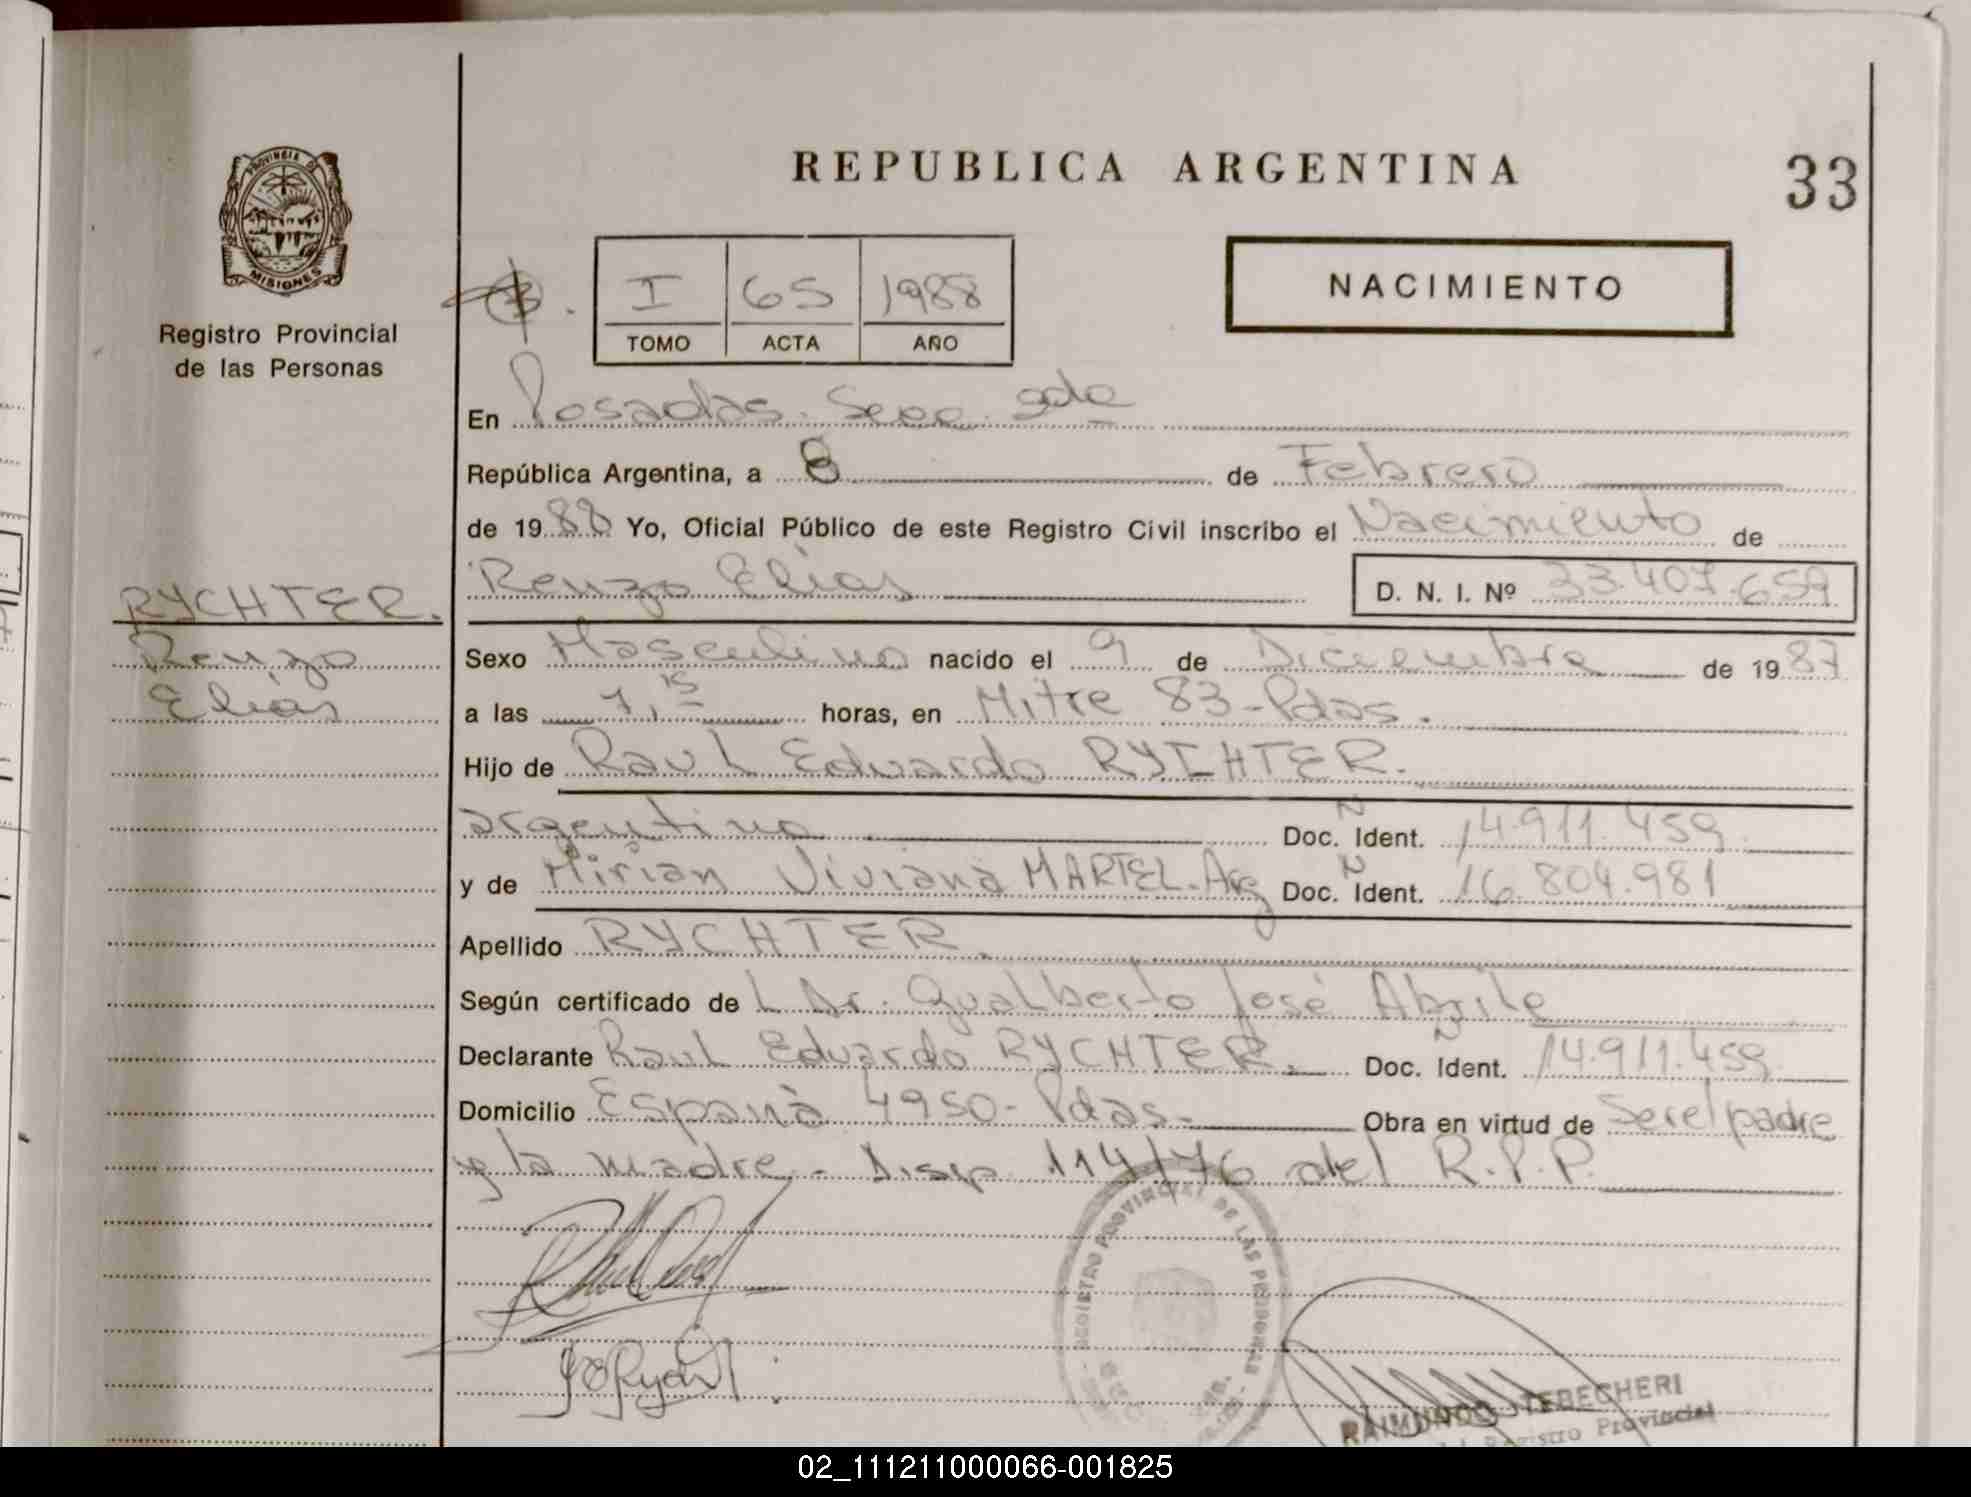 REPUBLICA ARGENTINA
33
PROVINCIA D
MISIONES
Registro Provincial
de las Personas
I 65 1988
TOMO ACTA AÑO
NACIMIENTO
En Posadas. Secc. 2da
República Argentina, a 8 de Febrero
de 1988 Yo, Oficial Público de este Registro Civil inscribo el Nacimiento de
Renzo Elías D. N. I. Nº 33.407.659
RYCHTER.
Renzo
Elías
Sexo Masculino nacido el 9 de Diciembre de 1987
a las 7,15 horas, en Mitre 83-Pdas.
Hijo de Raul Eduardo RYCHTER.
argentino Doc. Ident. 14.911.459
y de Mirian Viviana MARTEL-Arg Doc. Ident. 16.804.981
Apellido RYCHTER.
Según certificado de L Dr. Gualberto José Abrile
Declarante Raul Eduardo RYCHTER. Doc. Ident. 14.911.459
Domicilio España 4950-Pdas- Obra en virtud de Ser el padre
y la madre - Disp 114/76 del R.P.P.
REGISTRO PROVINCIAL DE LAS PERSONAS
RAIMUNDO TEBECHERI
Registro Provincial
02_111211000066-001825